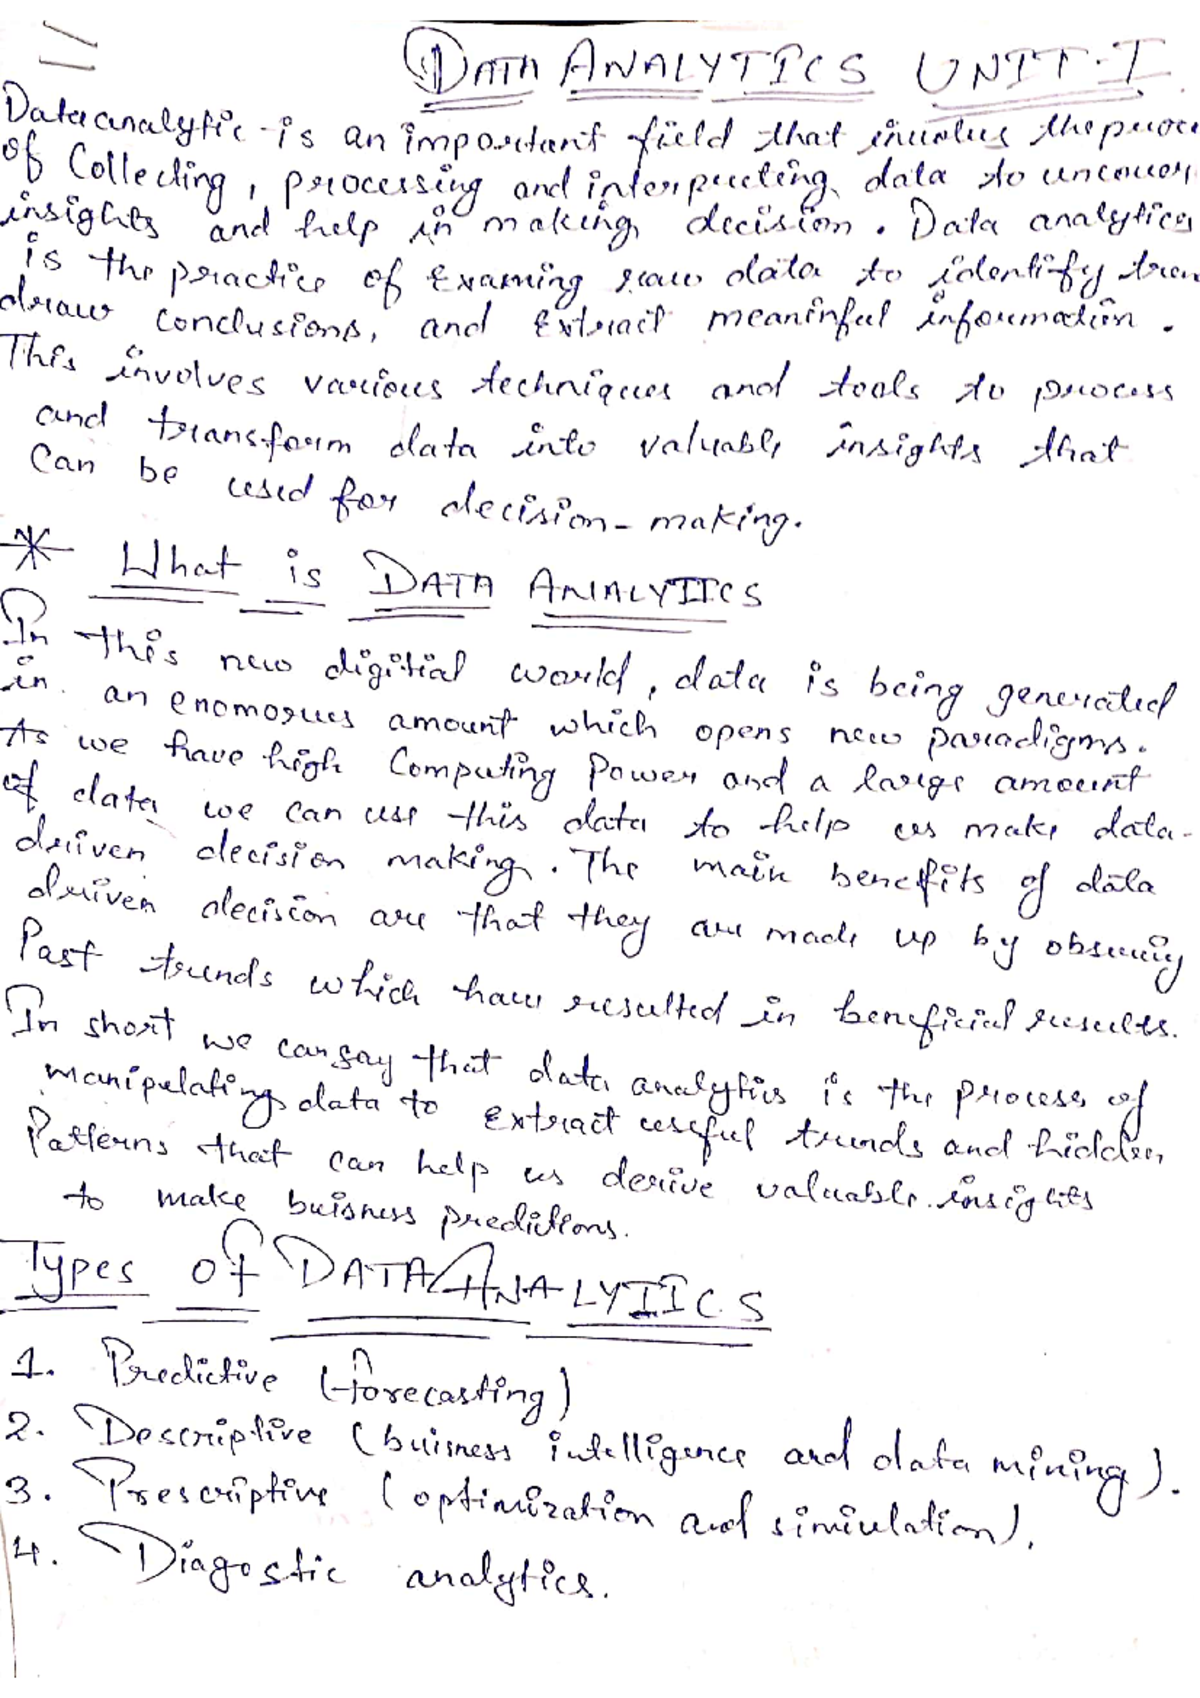 DATA ANALYTICS UNIT-I
Data analytic is an important field that involves the proce
of Collecting, processing and interpreting data to uncover
insights and help in making decision. Data analytics
is the practice of Examing raw data to identify tren
draw conclusions, and Extract meaninful information.
This involves various techniques and tools to process
and transform data into valuable insights that
Can be used for decision-making.
* What is DATA ANALYTICS
In this new digitial world, data is being generated
in an enomorues amount which opens new paradigms.
As we have high Computing Power and a large amount
of data we can use this data to help us make data-
driven decision making. The main benefits of data
driven decision are that they are made up by observing
Past trends which have resulted in beneficial results.
In short we can say that data analytics is the process of
manipulating data to extract useful trends and hidden
Patterns that can help us derive valuable insights
to make buisness predictions.
Types of DATA ANALYTICS
1. Predictive (forecasting)
2. Descriptive (buisness intelligence and data mining).
3. Prescriptive (optimization and simiulation).
4. Diagostic analytics.